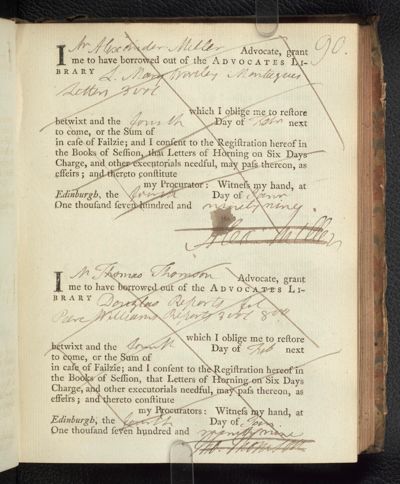 90.
I Mr Alexander Miller Advocate, grant
me to have borrowed out of the ADVOCATES LI-
BRARY L. Mary Wortley Montagues
Letters 3 vol
which I oblige me to reſtore
betwixt and the fourth Day of Febr next
to come, or the Sum of
in caſe of Failzie; and I conſent to the Regiſtration hereof in
the Books of Seſſion, that Letters of Horning on Six Days
Charge, and other executorials needful, may paſs thereon, as
effeirs; and thereto conſtitute
my Procurator: Witneſs my hand, at
Edinburgh, the fourth Day of Janr
One thouſand ſeven hundred and ninety nine
Alex Miller
I Mr Thomas Thomson Advocate, grant
me to have borrowed out of the ADVOCATES LI-
BRARY Douglas Reports fol
Peere Williams Reports 3 vol 8vo
which I oblige me to reſtore
betwixt and the fourth Day of Feb next
to come, or the Sum of
in caſe of Failzie; and I conſent to the Regiſtration hereof in
the Books of Seſſion, that Letters of Horning on Six Days
Charge, and other executorials needful, may paſs thereon, as
effeirs; and thereto conſtitute
my Procurators: Witneſs my hand, at
Edinburgh, the fourth Day of Jan
One thouſand ſeven hundred and ninety nine
Tho. Thomson